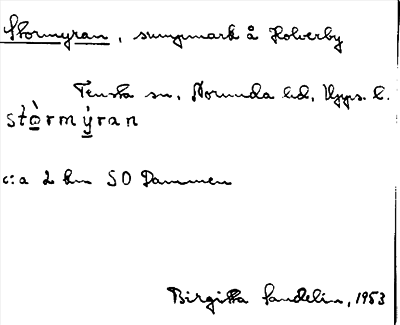 Stormyran, sumpmark å Holverby
Tensta sn, Norunda hd, Upps. l.
stòrmýran
c:a 2 km SO Dammen
Birgitta Sandelin, 1953